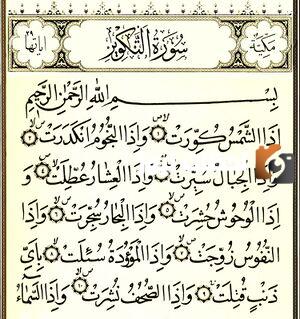 آياتها ٢٩ سُورَةُ التَّكْوِيرِ مَكِّيَّة
بِسْمِ اللَّهِ الرَّحْمَٰنِ الرَّحِيمِ
إِذَا الشَّمْسُ كُوِّرَتْ ١ وَإِذَا النُّجُومُ انكَدَرَتْ ٢
وَإِذَا الْجِبَالُ سُيِّرَتْ ٣ وَإِذَا الْعِشَارُ عُطِّلَتْ ٤ وَ
إِذَا الْوُحُوشُ حُشِرَتْ ٥ وَإِذَا الْبِحَارُ سُجِّرَتْ ٦ وَإِذَا
النُّفُوسُ زُوِّجَتْ ٧ وَإِذَا الْمَوْءُودَةُ سُئِلَتْ ٨ بِأَيِّ
ذَنبٍ قُتِلَتْ ٩ وَإِذَا الصُّحُفُ نُشِرَتْ ١٠ وَإِذَا السَّمَاءُ